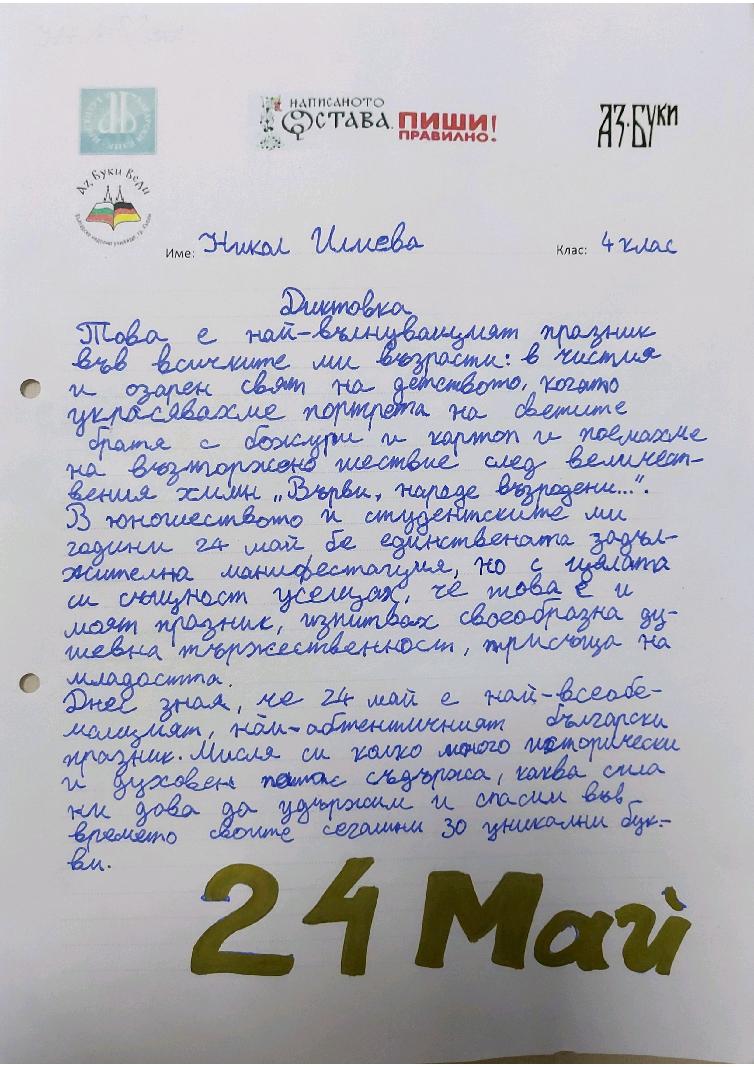 НАПИСАНОТО
ОСТАВА.
ПИШИ
ПРАВИЛНО!
АЗ·БУКИ
Аз Буки Веди
Име: Никол Илиева
Клас: 4 клас
Диктовка
Това е най-вълнуващият празник
във всичките ми възрасти: в чистия
и озарен свят на детството, когато
украсявахме портрета на светите
братя с божури и картоп и поемахме
на възторжено шествие след величест-
вения химн „Върви, народе възродени...".
В юношеството и студентските ми
години 24 май бе единствената задъл-
жителна манифестация, но с цялата
си същност усещах, че това е и
моят празник, изпитвах своеобразна ду-
шевна тържественност, присъща на
младостта.
Днес зная, че 24 май е най-всеобе-
малящият, най-автентичният български
празник. Мисля си колко много исторически
и духовен патос съдържа, каква сила
ни дава да удържим и спасим във
времето своите сегашни 30 уникални бук-
ви.
24 Май